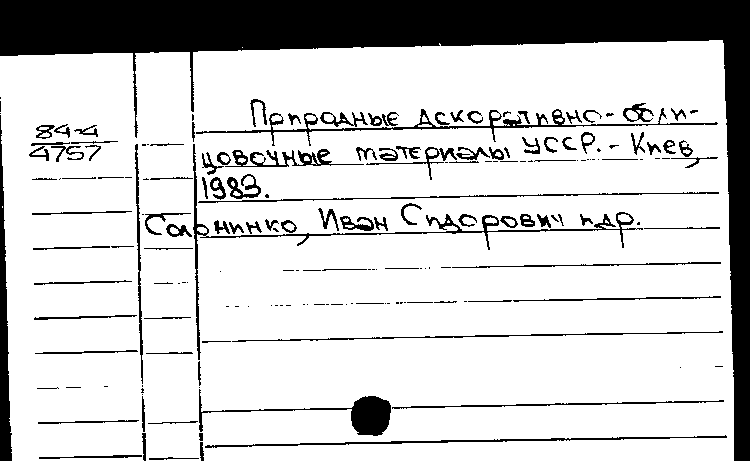 84-4
4757
Природные декоративно-обли-
цовочные материалы УССР. - Киев,
1983.
Солонинко, Иван Сидорович и др.